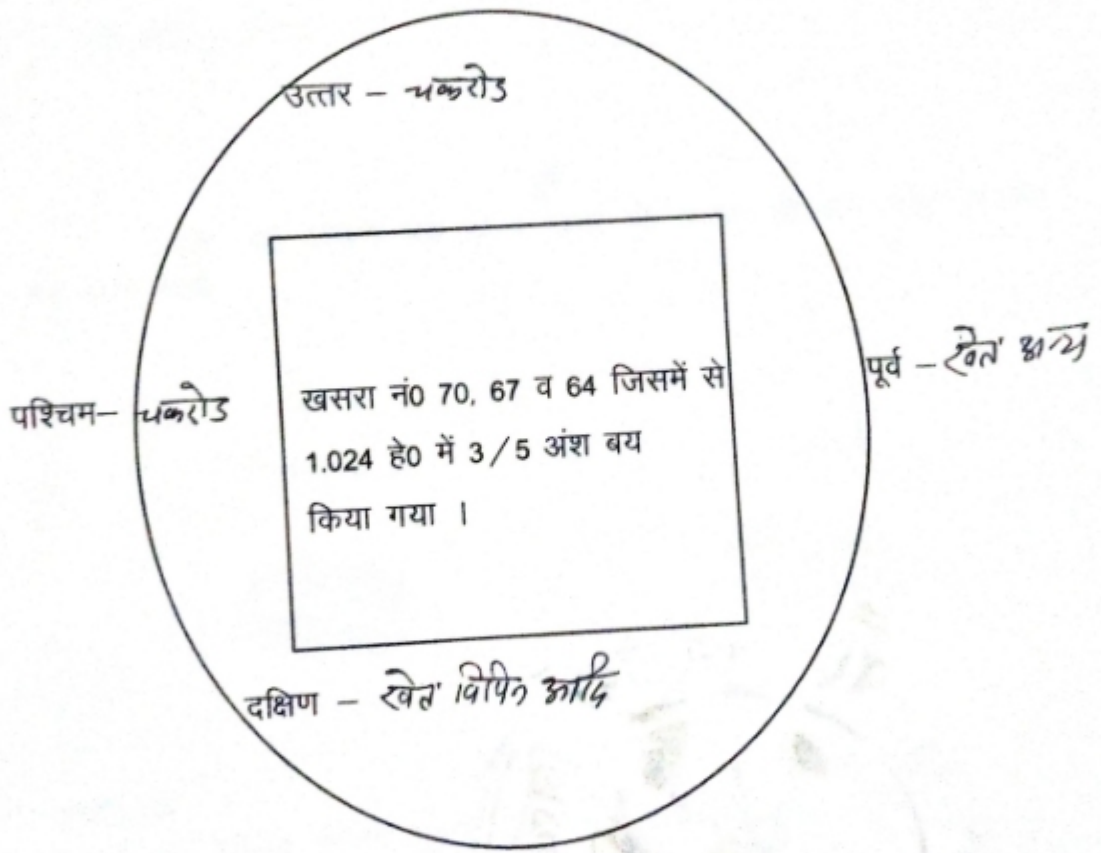 उत्तर – चकरोड
पश्चिम– चकरोड
खसरा नं0 70, 67 व 64 जिसमें से
1.024 हे0 में 3/5 अंश बय
किया गया ।
पूर्व – खेत अन्य
दक्षिण – खेत विपिन आदि